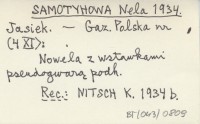 SAMOTYHOWA Nela 1934.
Jasiek. — Gaz. Polska nr
(4 XI):
Nowela z wstawkami
pseudogwarą podh.
Rec.: NITSCH K. 1934 b.
BT/043/0809